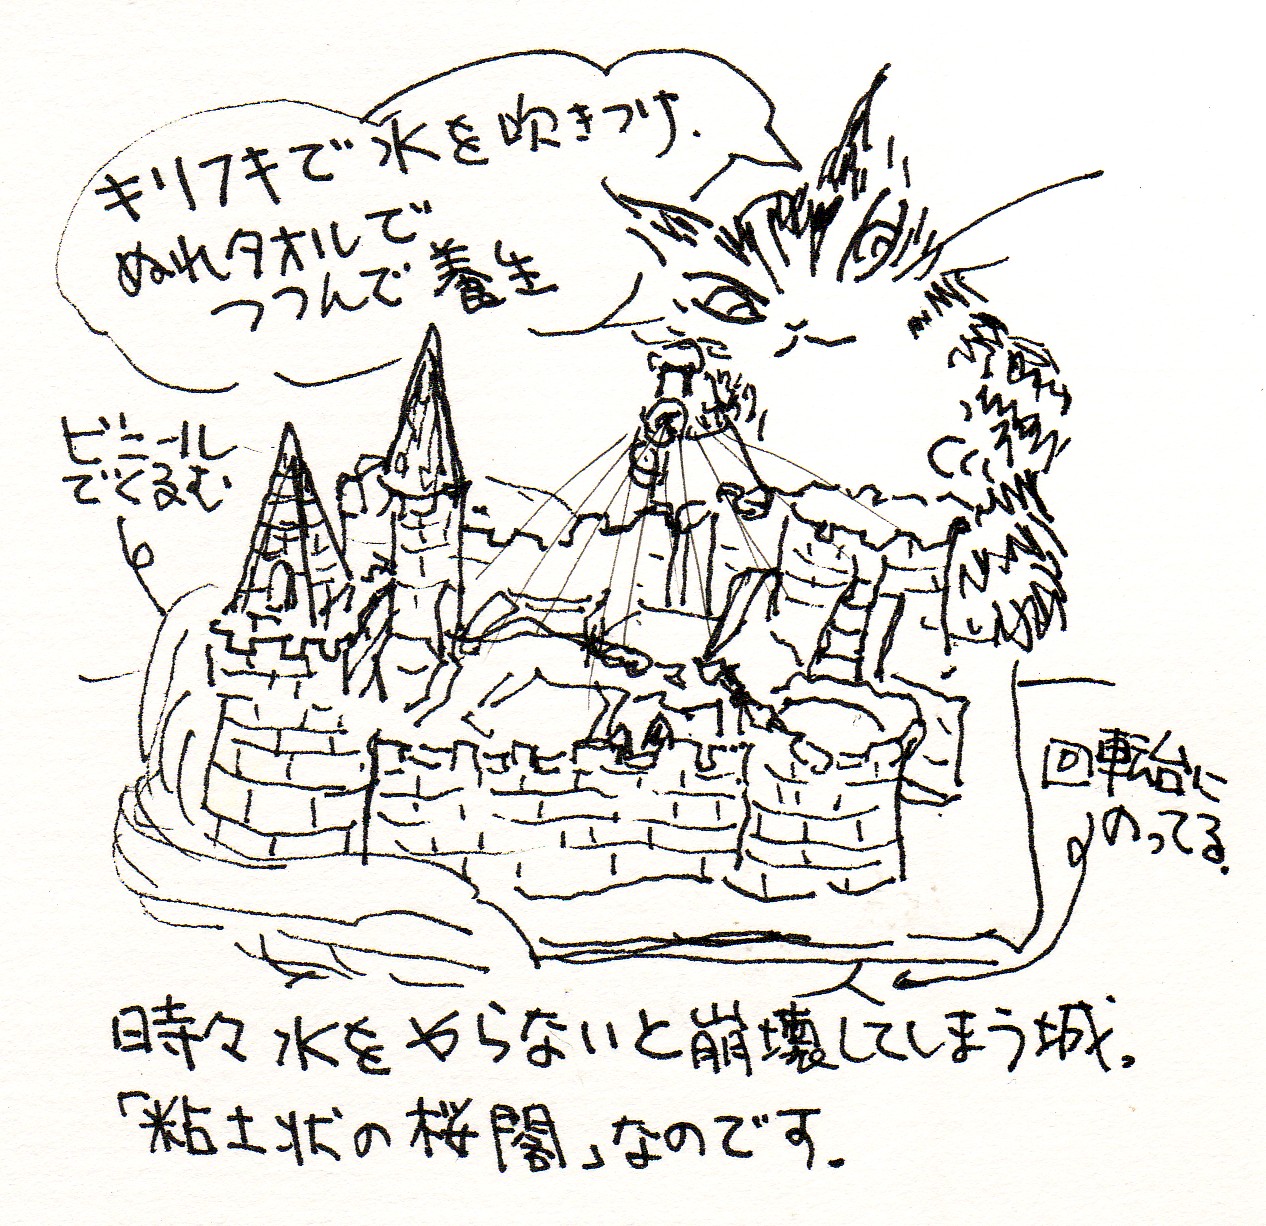 キリフキで水を吹きつけ.
ぬれタオルで
つつんで養生
ビニール
でくるむ
回転台に
のってる.
時々水をやらないと崩壊してしまう城。
「粘土状の桜閣」なのです.